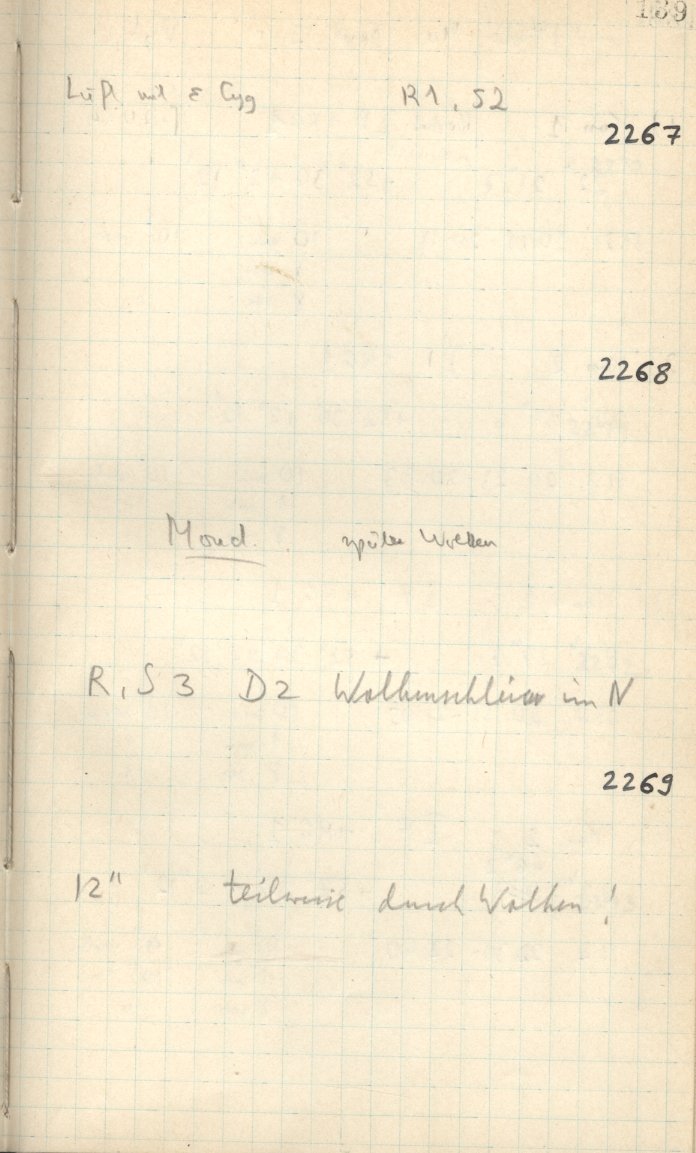 139
Luft mit ε Cyg R1, S2
2267
2268
Mond. später Wolken
R, S 3 D2 Wolkenschleier im N
2269
12" teilweise durch Wolken!